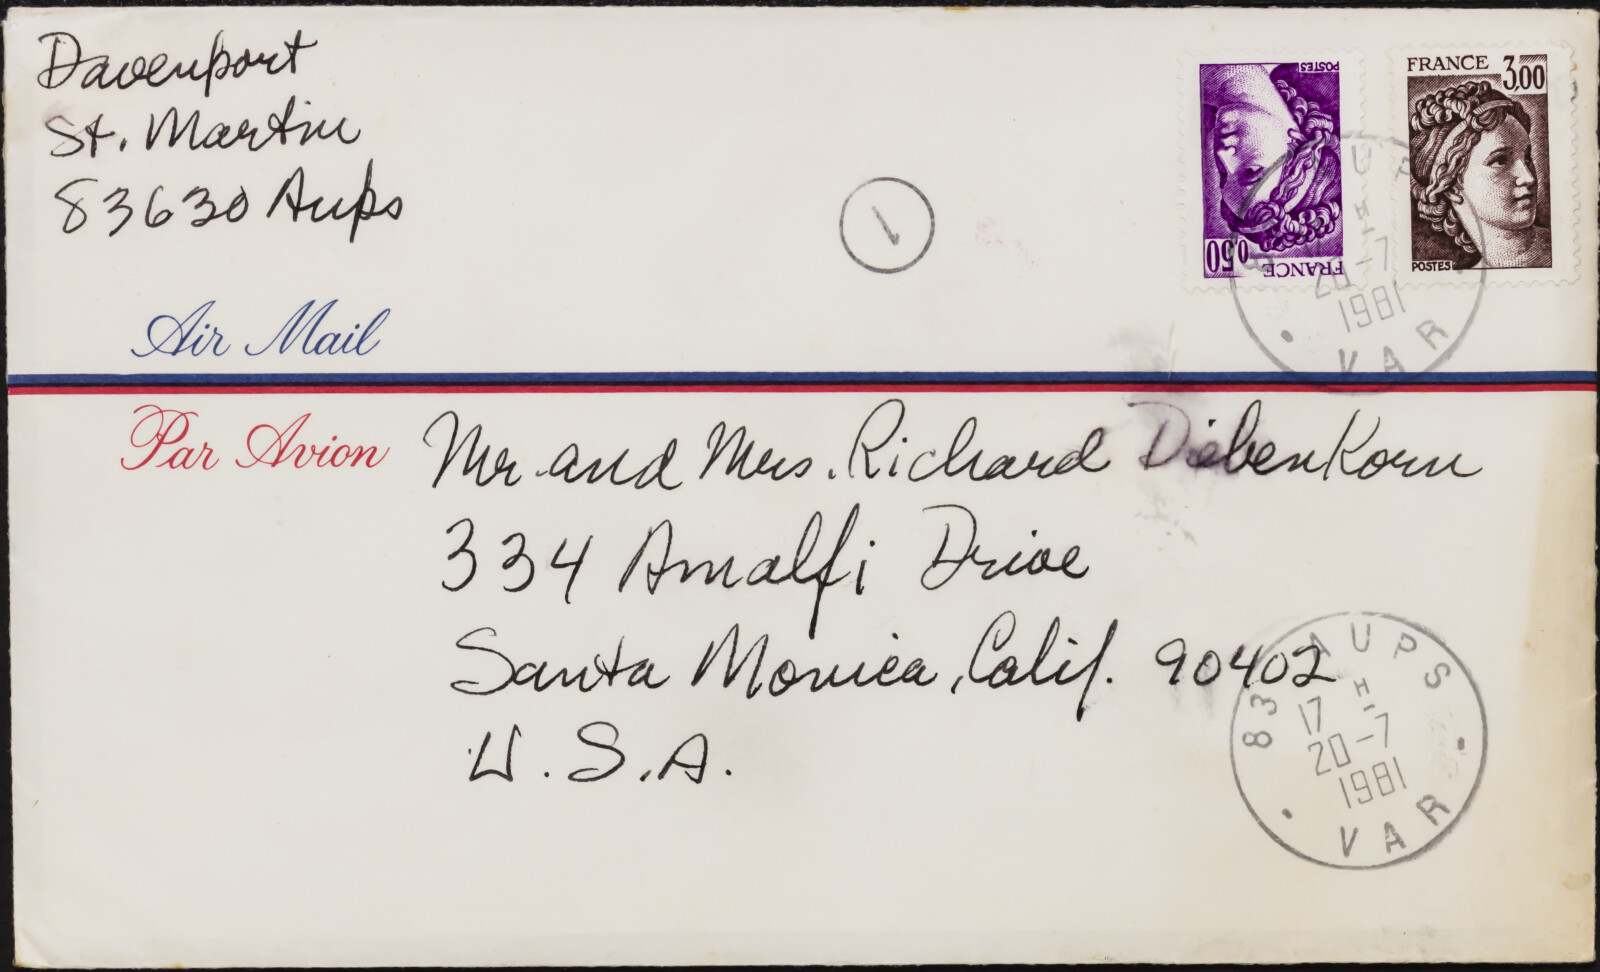 Davenport
St. Martin
83630 Aups
1
POSTES
0,50
FRANCE
FRANCE 3,00
POSTES
UP
H
20-7
1981
VAR
Air Mail
Par Avion
Mr. and Mrs. Richard DiebenKorn
334 Amalfi Drive
Santa Monica, Calif. 90402
U.S.A.
83 AUPS
17 H
20-7
1981
VAR